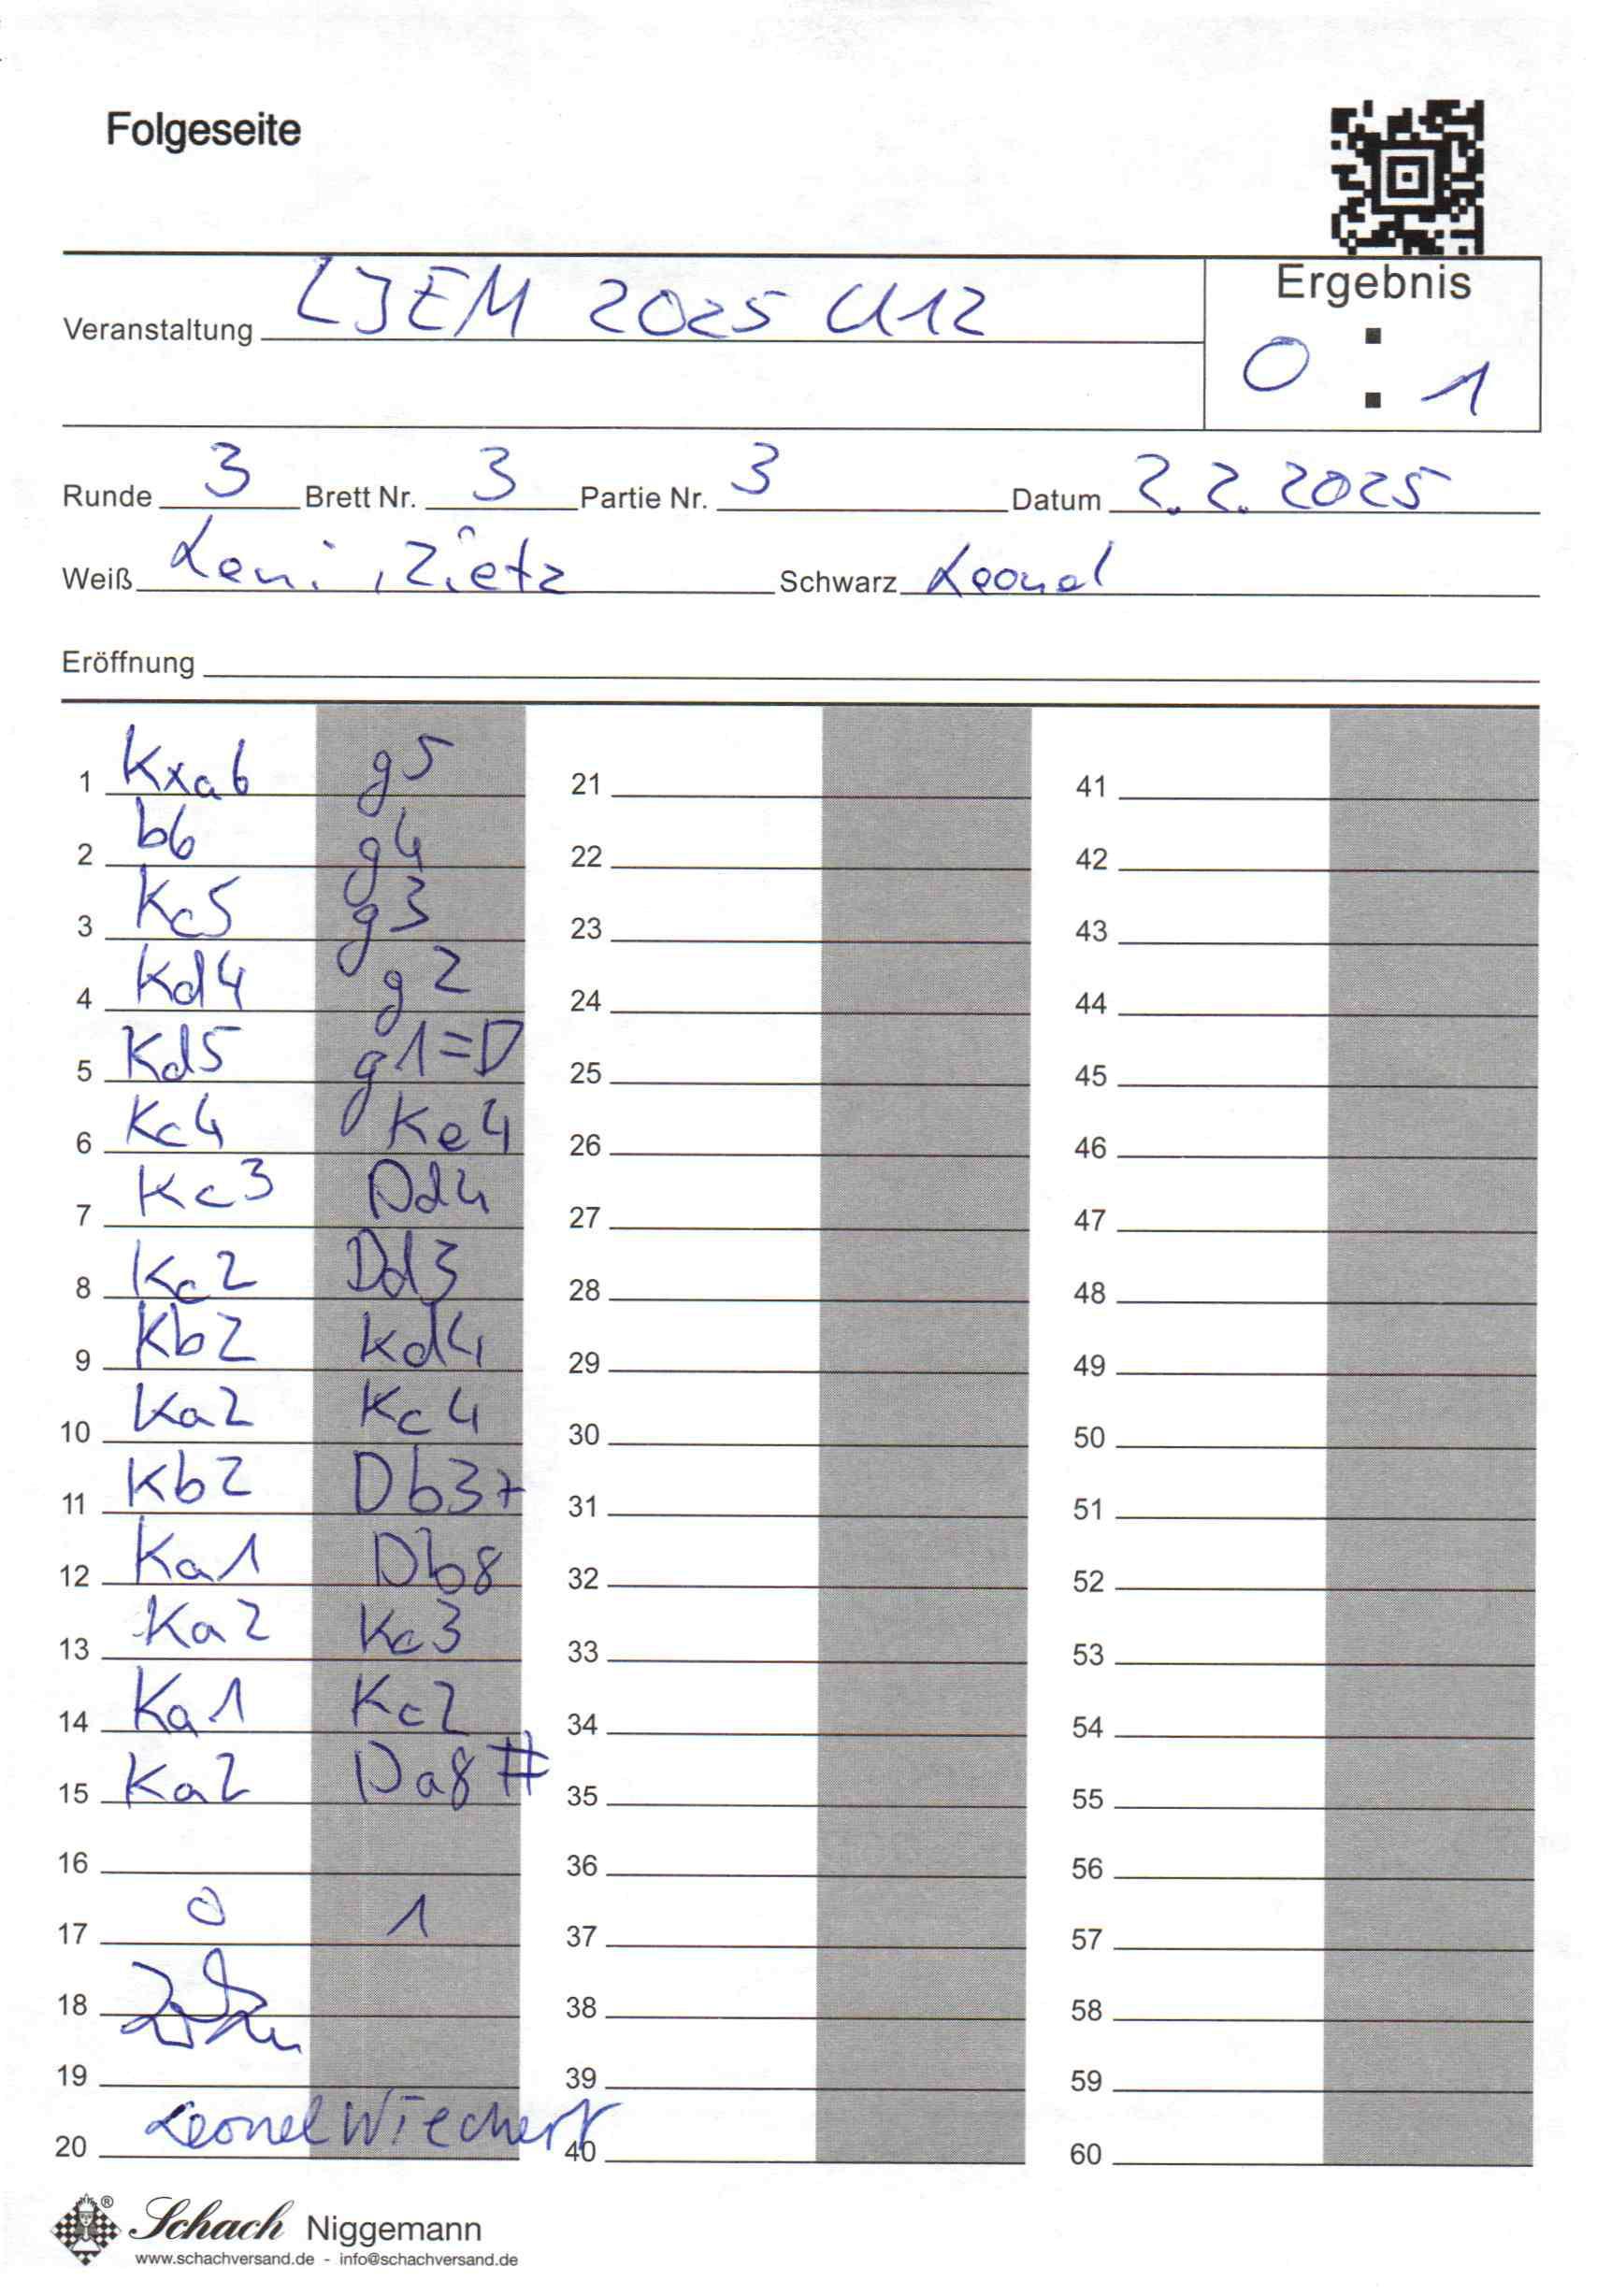 Folgeseite
Ergebnis
Veranstaltung LJEM 2025 U12
0 : 1
Runde 3 Brett Nr. 3 Partie Nr. 3 Datum 2.2.2025
Weiß Leni, Zietz Schwarz Leonel
Eröffnung
1 Kxa6 g5 21 41
2 b6 g4 22 42
3 Kc5 g3 23 43
4 Kd4 g2 24 44
5 Kd5 g1=D 25 45
6 Kc4 Ke4 26 46
7 Kc3 Dd4 27 47
8 Kc2 Dd3 28 48
9 Kb2 Kd4 29 49
10 Ka2 Kc4 30 50
11 Kb2 Db3+ 31 51
12 Ka1 Db8 32 52
13 Ka2 Kc3 33 53
14 Ka1 Kc2 34 54
15 Ka2 Da8# 35 55
16 36 56
17 0 1 37 57
18 38 58
19 39 59
20 Leonel Wiechert 40 60
® Schach Niggemann
www.schachversand.de - info@schachversand.de